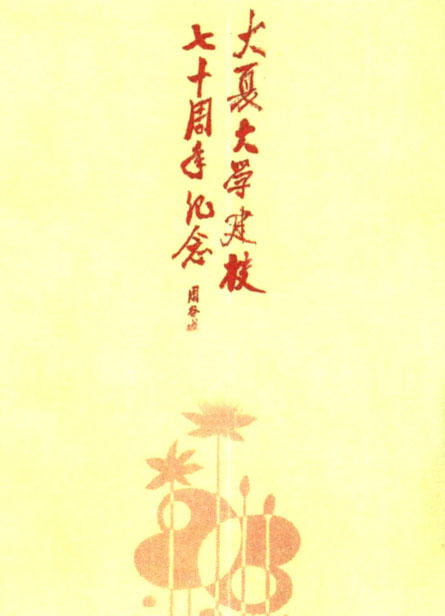 大夏大学建校
七十周年纪念
周谷城